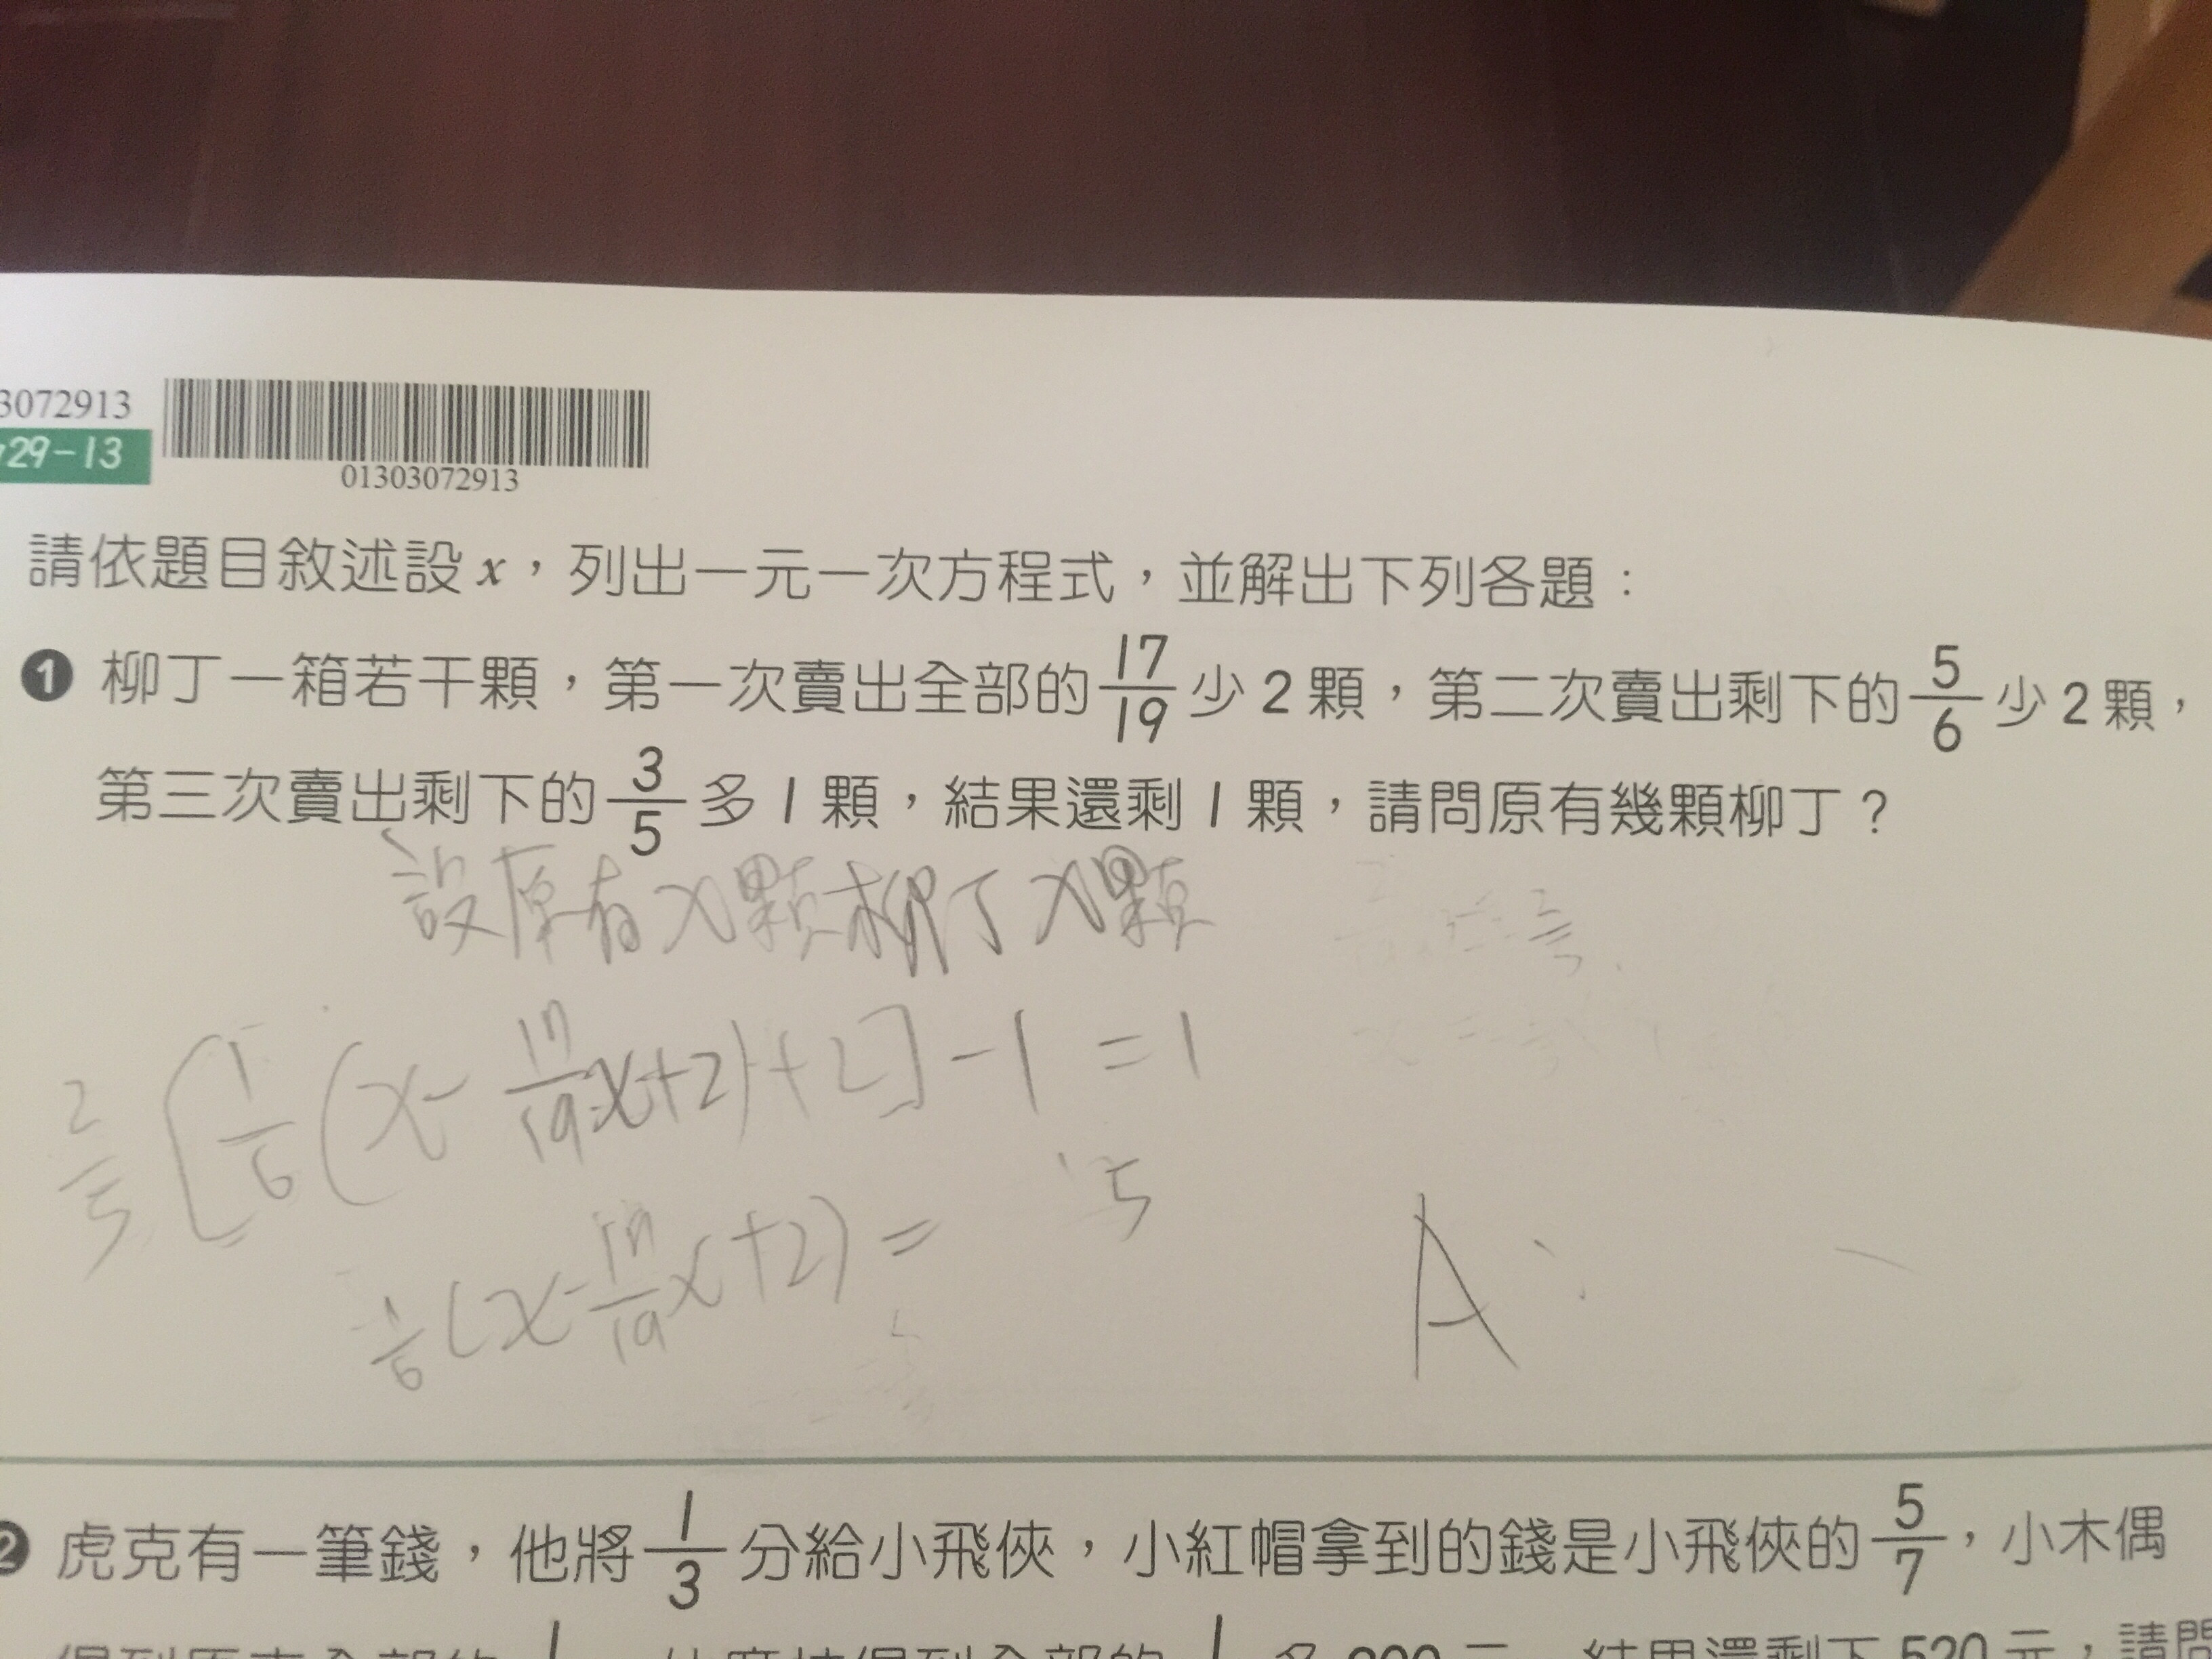 3072913
29-13
01303072913
請依題目敘述設x，列出一元一次方程式，並解出下列各題：
❶ 柳丁一箱若干顆，第一次賣出全部的 17/19 少 2 顆，第二次賣出剩下的 5/6 少 2 顆，
第三次賣出剩下的 3/5 多 1 顆，結果還剩 1 顆，請問原有幾顆柳丁？
設原有x顆柳丁x顆
2/5 [1/6 (x - 17/19 x + 2) + 2] - 1 = 1
5
1/6 (x - 17/19 x + 2) =
A：
❷ 虎克有一筆錢，他將 1/3 分給小飛俠，小紅帽拿到的錢是小飛俠的 5/7，小木偶